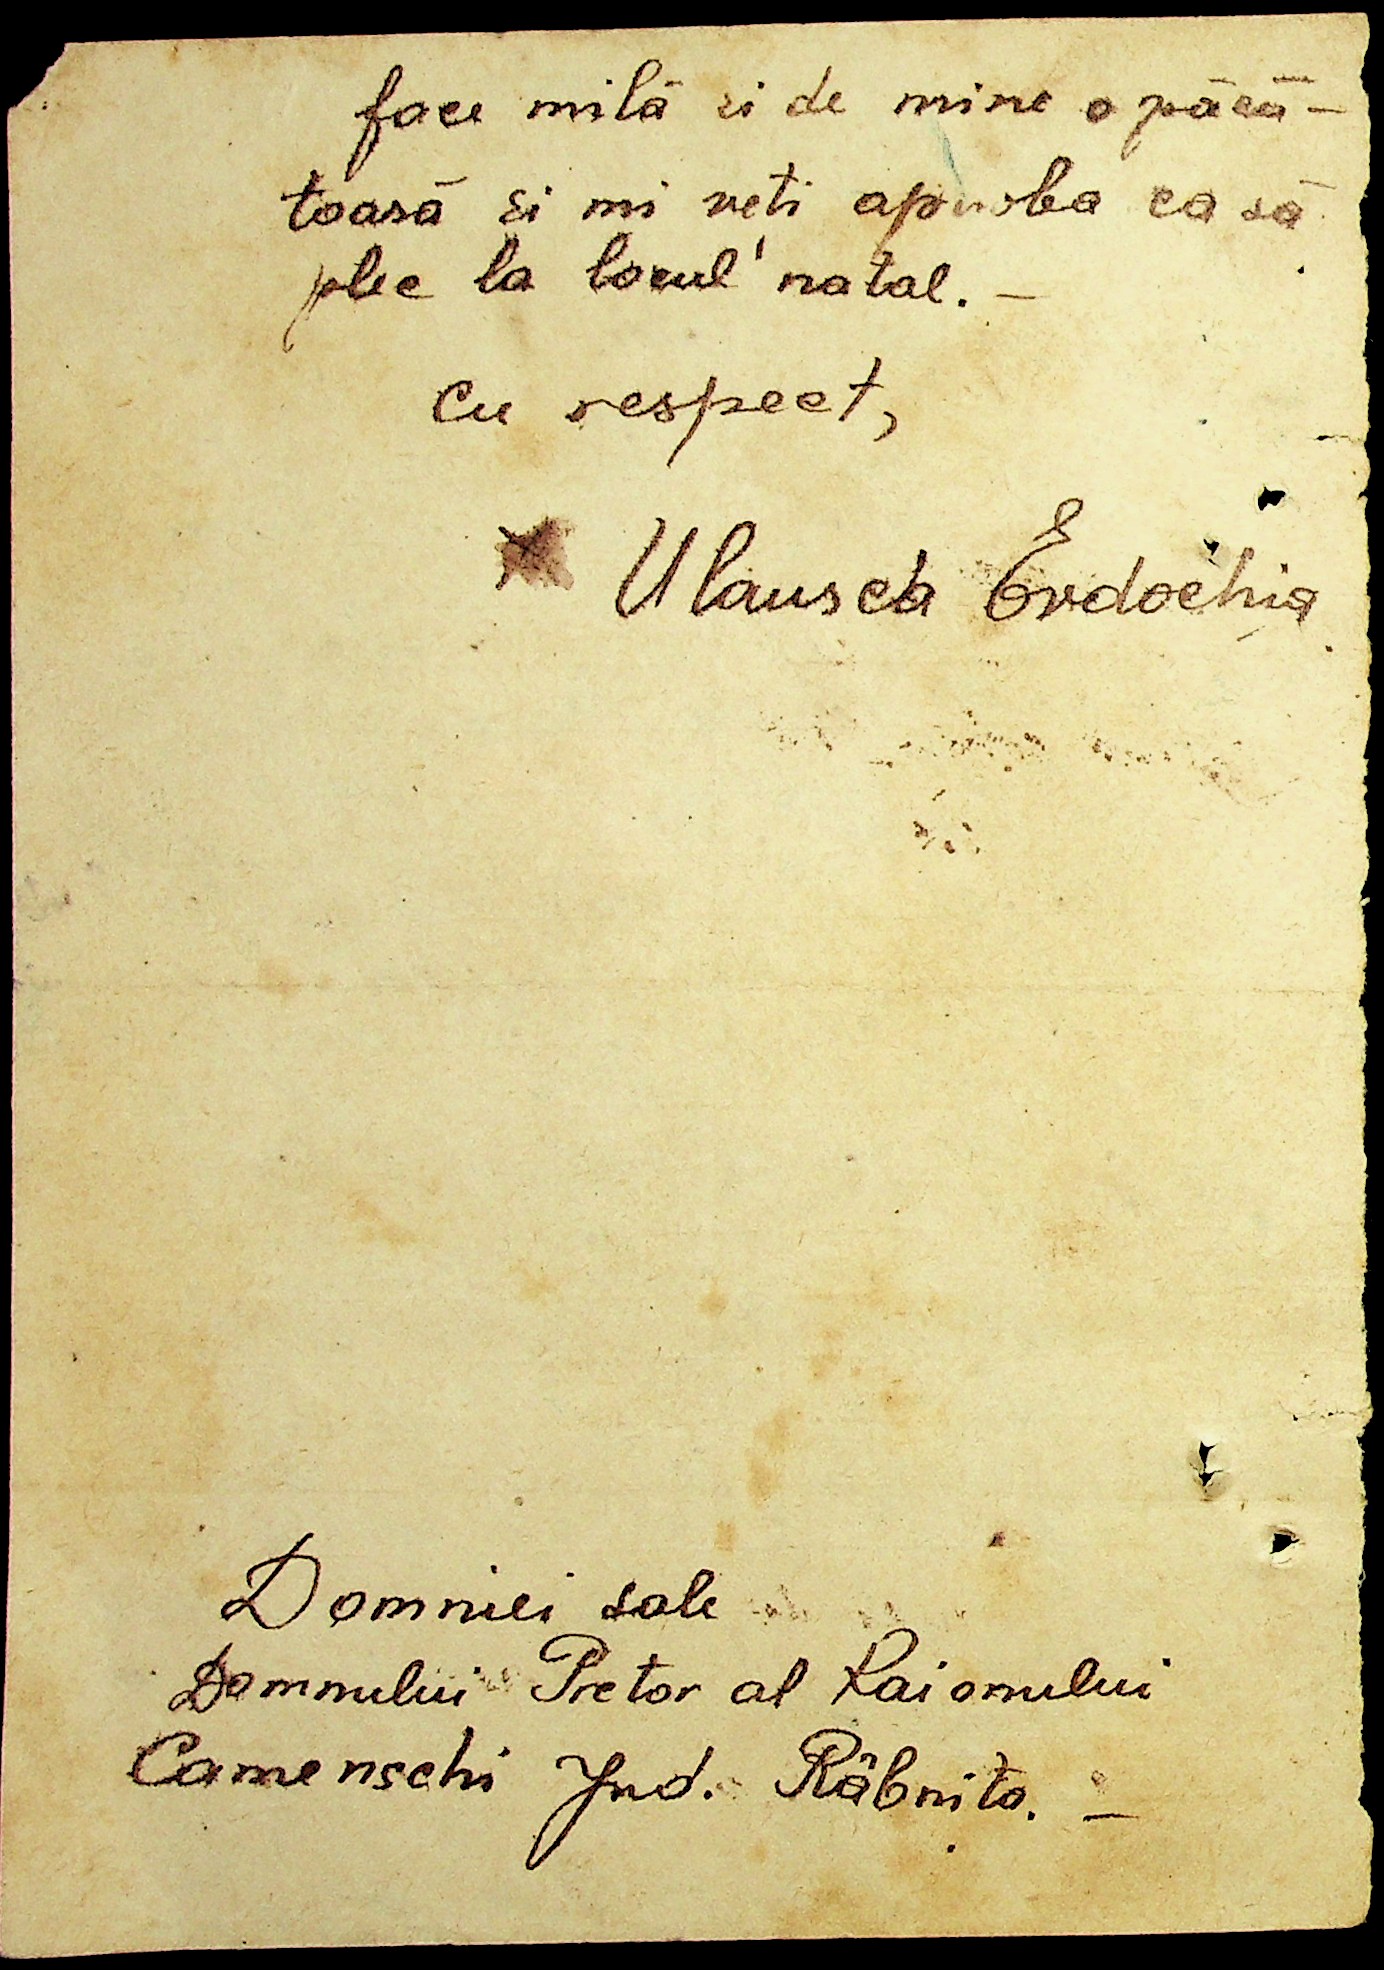 face milă si de mine o păcă-
toasă si mi veti aproba ca să
plec la locul natal. —
Cu respect,
Ulausch Evdochia
Domniei sale
Domnului Pretor al Raionului
Camenschi Jud. Râbnita. —